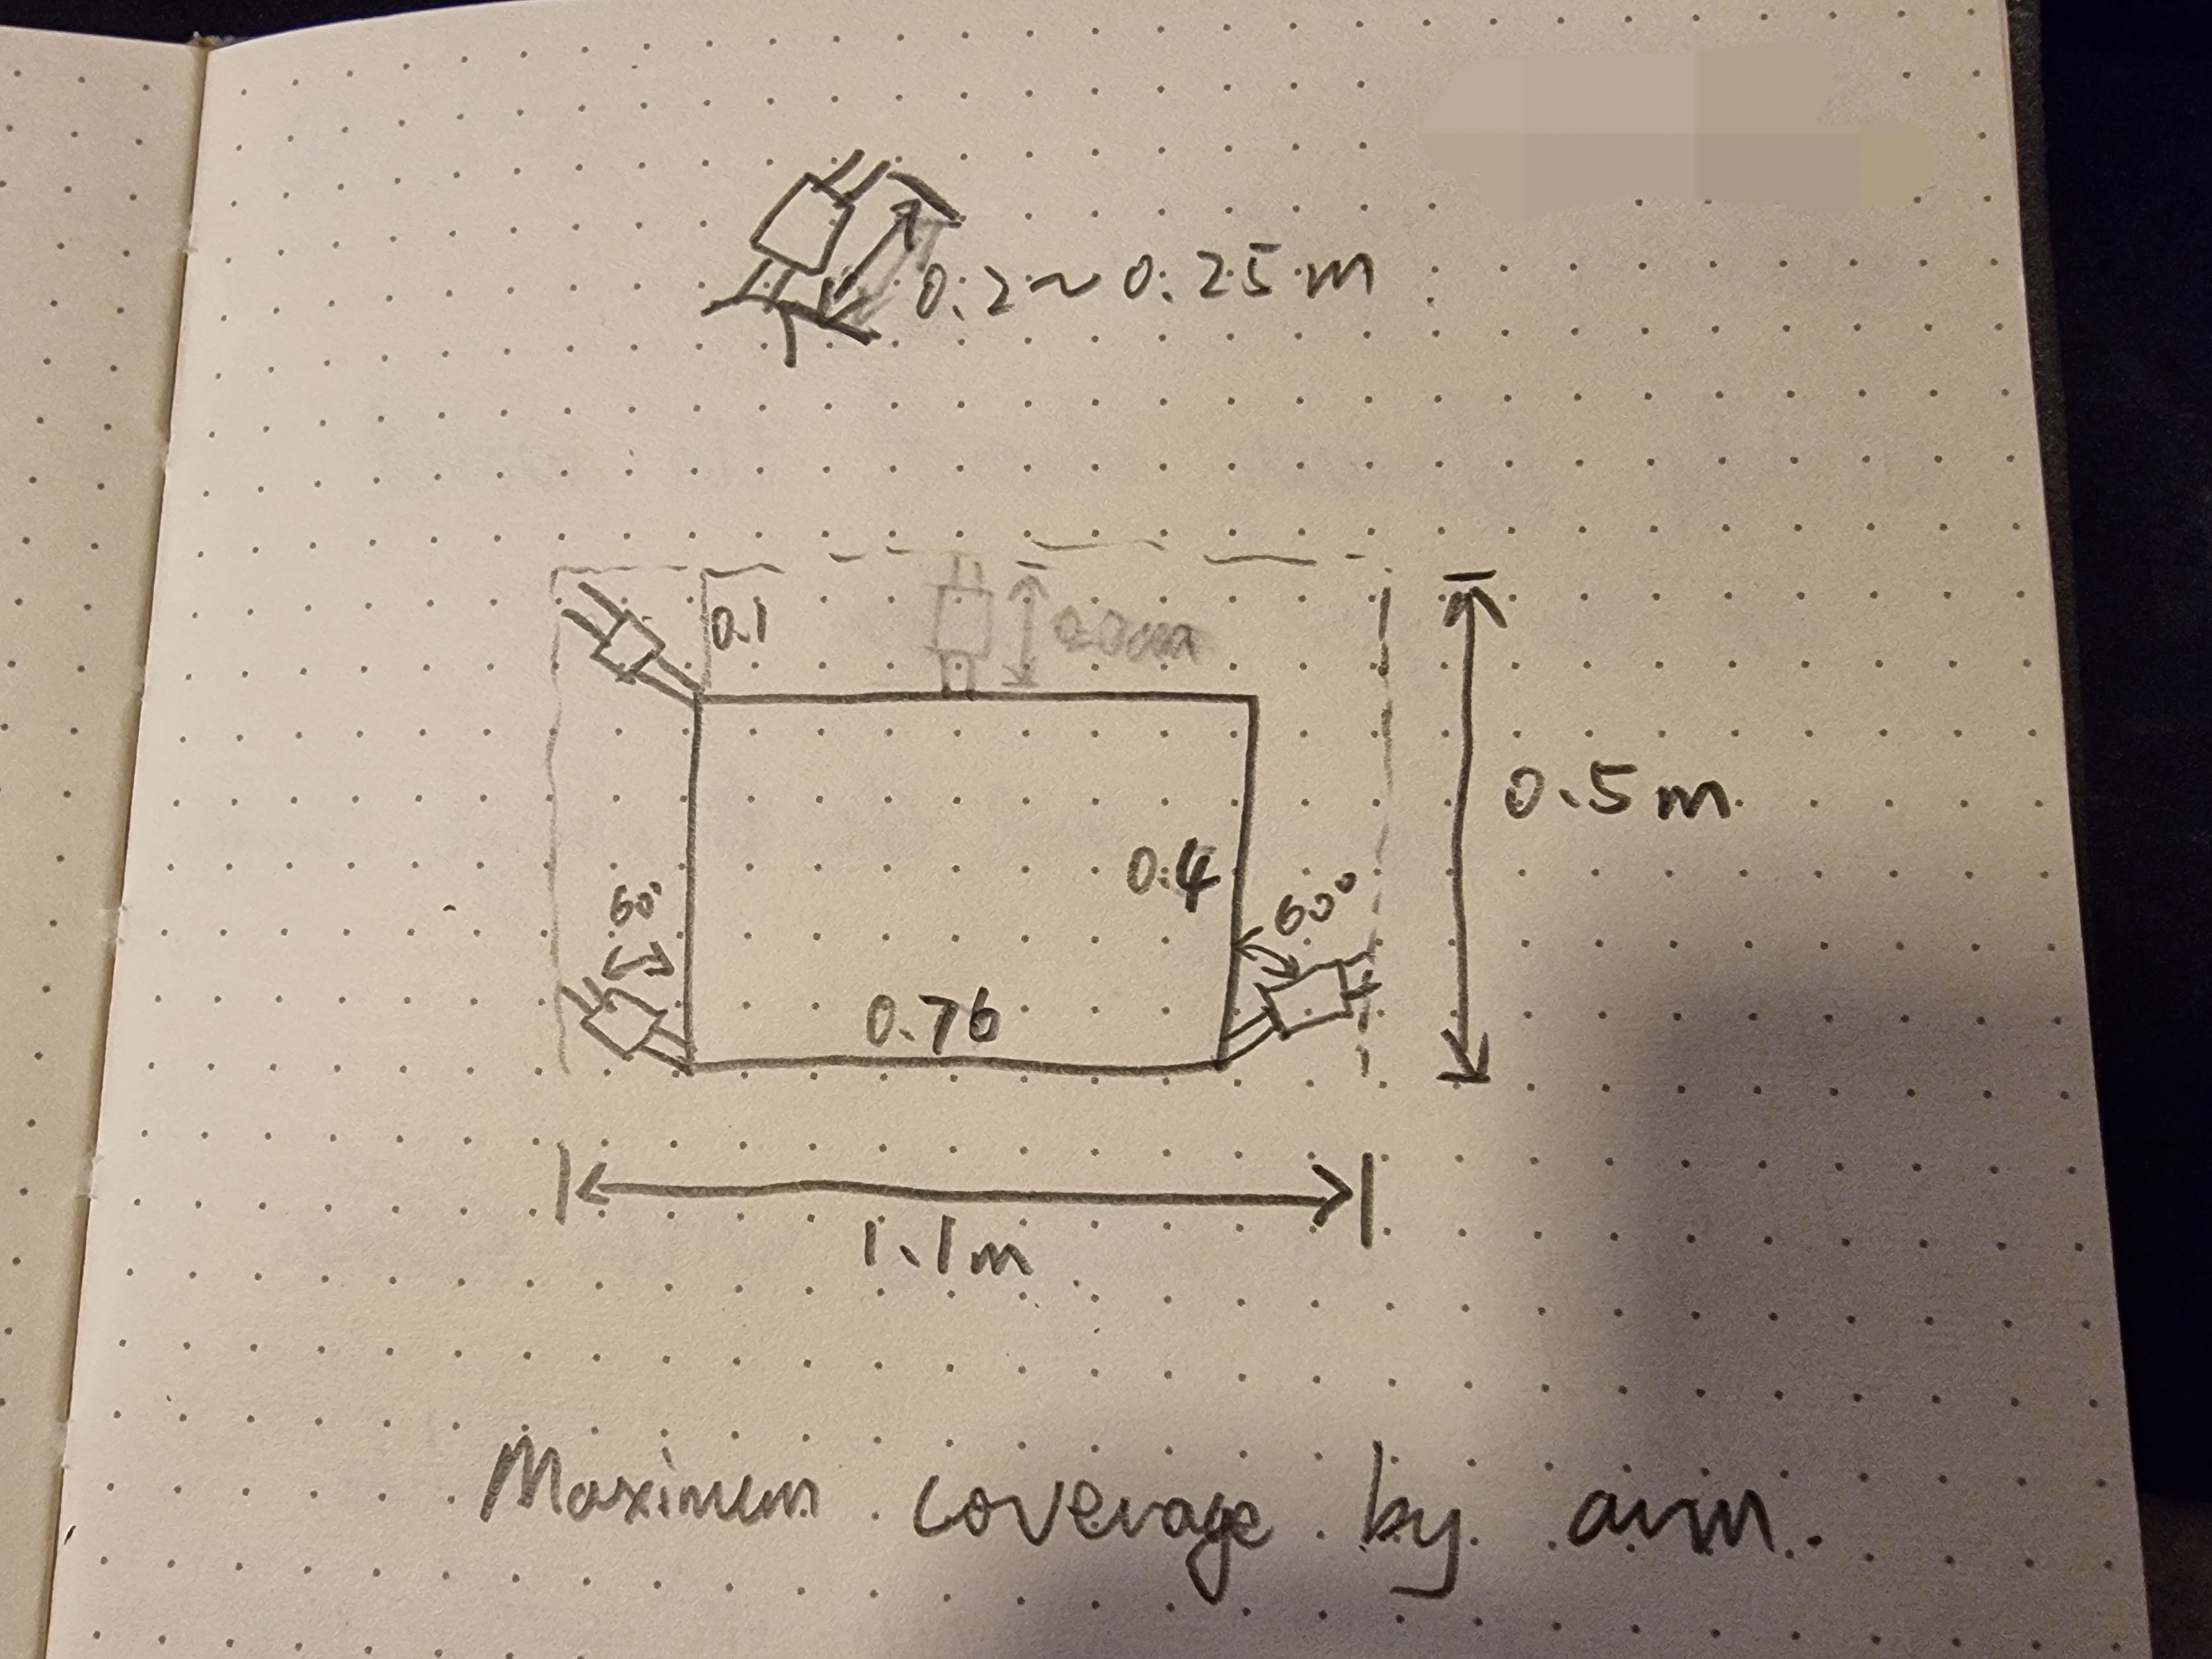 0.2~0.25m
0.1
0.5m
0.4
60°
60°
0.76
1.1m
Maximum coverage by arm.